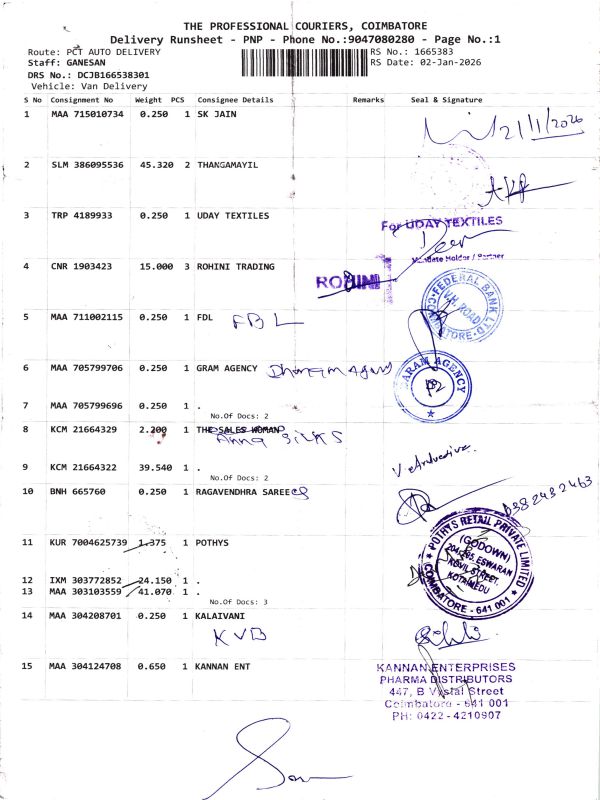 THE PROFESSIONAL COURIERS, COIMBATORE
Delivery Runsheet - PNP - Phone No.:9047080280 - Page No.:1
Route: PCT AUTO DELIVERY RS No.: 1665383
Staff: GANESAN RS Date: 02-Jan-2026
DRS No.: DCJB166538301
Vehicle: Van Delivery
S No Consignment No Weight PCS Consignee Details Remarks Seal & Signature
1 MAA 715010734 0.250 1 SK JAIN
2/1/2026
2 SLM 386095536 45.320 2 THANGAMAYIL
3 TRP 4189933 0.250 1 UDAY TEXTILES
For UDAY TEXTILES
Mandate Holder / Partner
4 CNR 1903423 15.000 3 ROHINI TRADING
ROHINI
FEDERAL BANK LTD.
V.H. ROAD
COIMBATORE
5 MAA 711002115 0.250 1 FDL
FBL
6 MAA 705799706 0.250 1 GRAM AGENCY
ARAM AGENCY
7 MAA 705799696 0.250 1 .
No.Of Docs: 2
8 KCM 21664329 2.200 1 THE SALES WOMAN
Anna SILKS
9 KCM 21664322 39.540 1 .
No.Of Docs: 2
10 BNH 665760 0.250 1 RAGAVENDHRA SAREE
11 KUR 7004625739 1.375 1 POTHYS
POTHYS RETAIL PRIVATE LIMITED
(GODOWN)
ESWARAN
KOVIL STREET,
KOTAIMEDU
COIMBATORE - 641 001
12 IXM 303772852 24.150 1 .
13 MAA 303103559 41.070 1 .
No.Of Docs: 3
14 MAA 304208701 0.250 1 KALAIVANI
KVB
15 MAA 304124708 0.650 1 KANNAN ENT
KANNAN ENTERPRISES
PHARMA DISTRIBUTORS
447, B Vysial Street
Coimbatore - 641 001
PH: 0422 - 4210907